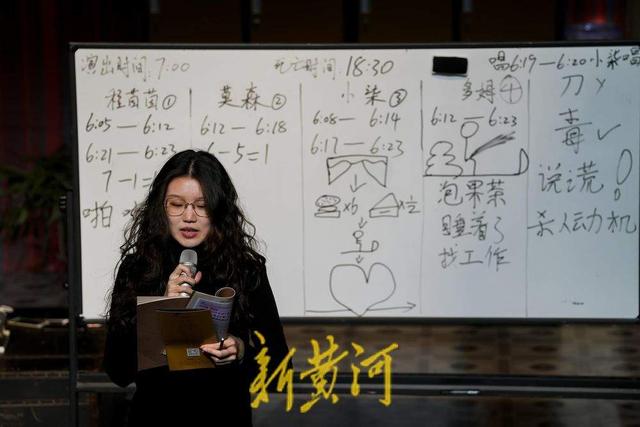 演出时间:7:00
死亡时间:18:30
唱6:19—6:20小柒唱
程茵茵①
6:05—6:12
6:21—6:23
7-1=1
啪
莫森②
6:12—6:18
6-5=1
小柒③
6:08—6:14
6:17—6:23
×6
×½
多姆④
6:12—6:23
泡果茶
睡着了
找工作
刀×
毒✓
说谎?!
杀人动机
新黄河